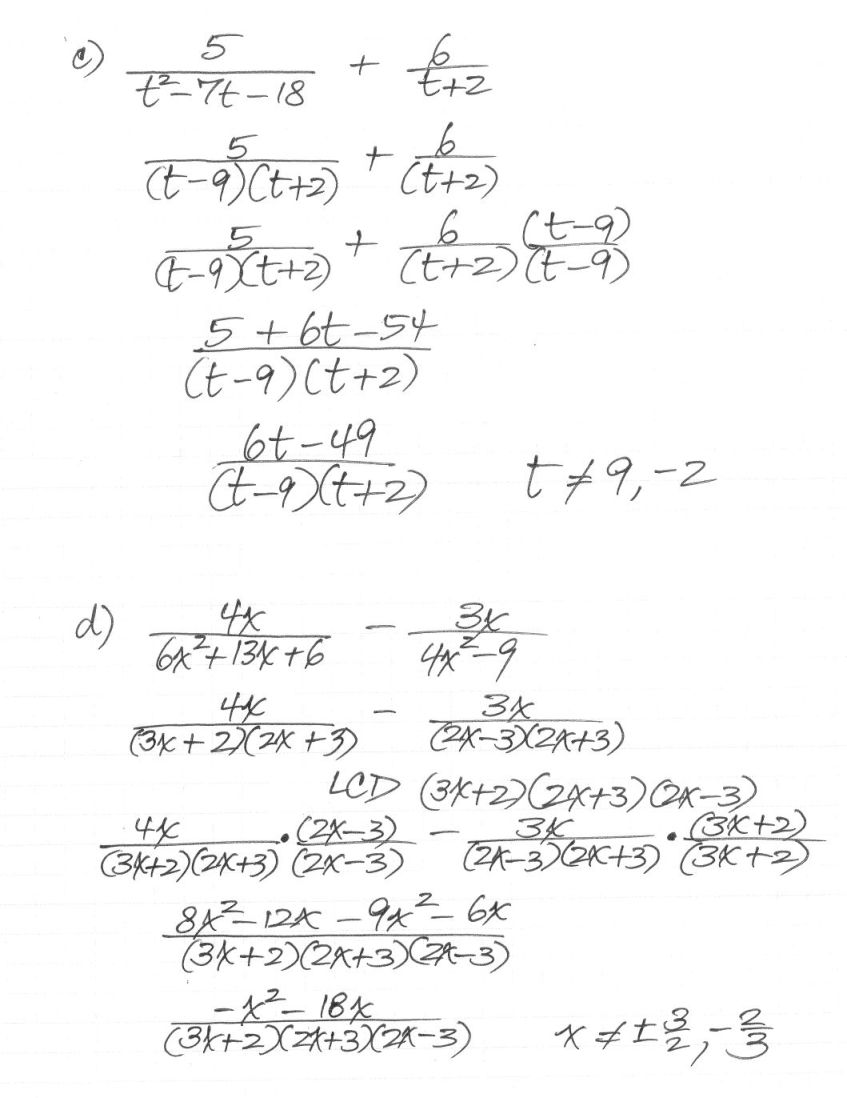 c) 5/(t²-7t-18) + 6/(t+2)
5/((t-9)(t+2)) + 6/(t+2)
5/((t-9)(t+2)) + 6/(t+2) (t-9)/(t-9)
(5+6t-54)/((t-9)(t+2))
(6t-49)/((t-9)(t+2)) t≠9,-2
d) 4x/(6x²+13x+6) - 3x/(4x²-9)
4x/((3x+2)(2x+3)) - 3x/((2x-3)(2x+3))
LCD (3x+2)(2x+3)(2x-3)
4x/((3x+2)(2x+3)) • (2x-3)/(2x-3) - 3x/((2x-3)(2x+3)) • (3x+2)/(3x+2)
(8x²-12x-9x²-6x)/((3x+2)(2x+3)(2x-3))
(-x²-18x)/((3x+2)(2x+3)(2x-3)) x≠±3/2,-2/3